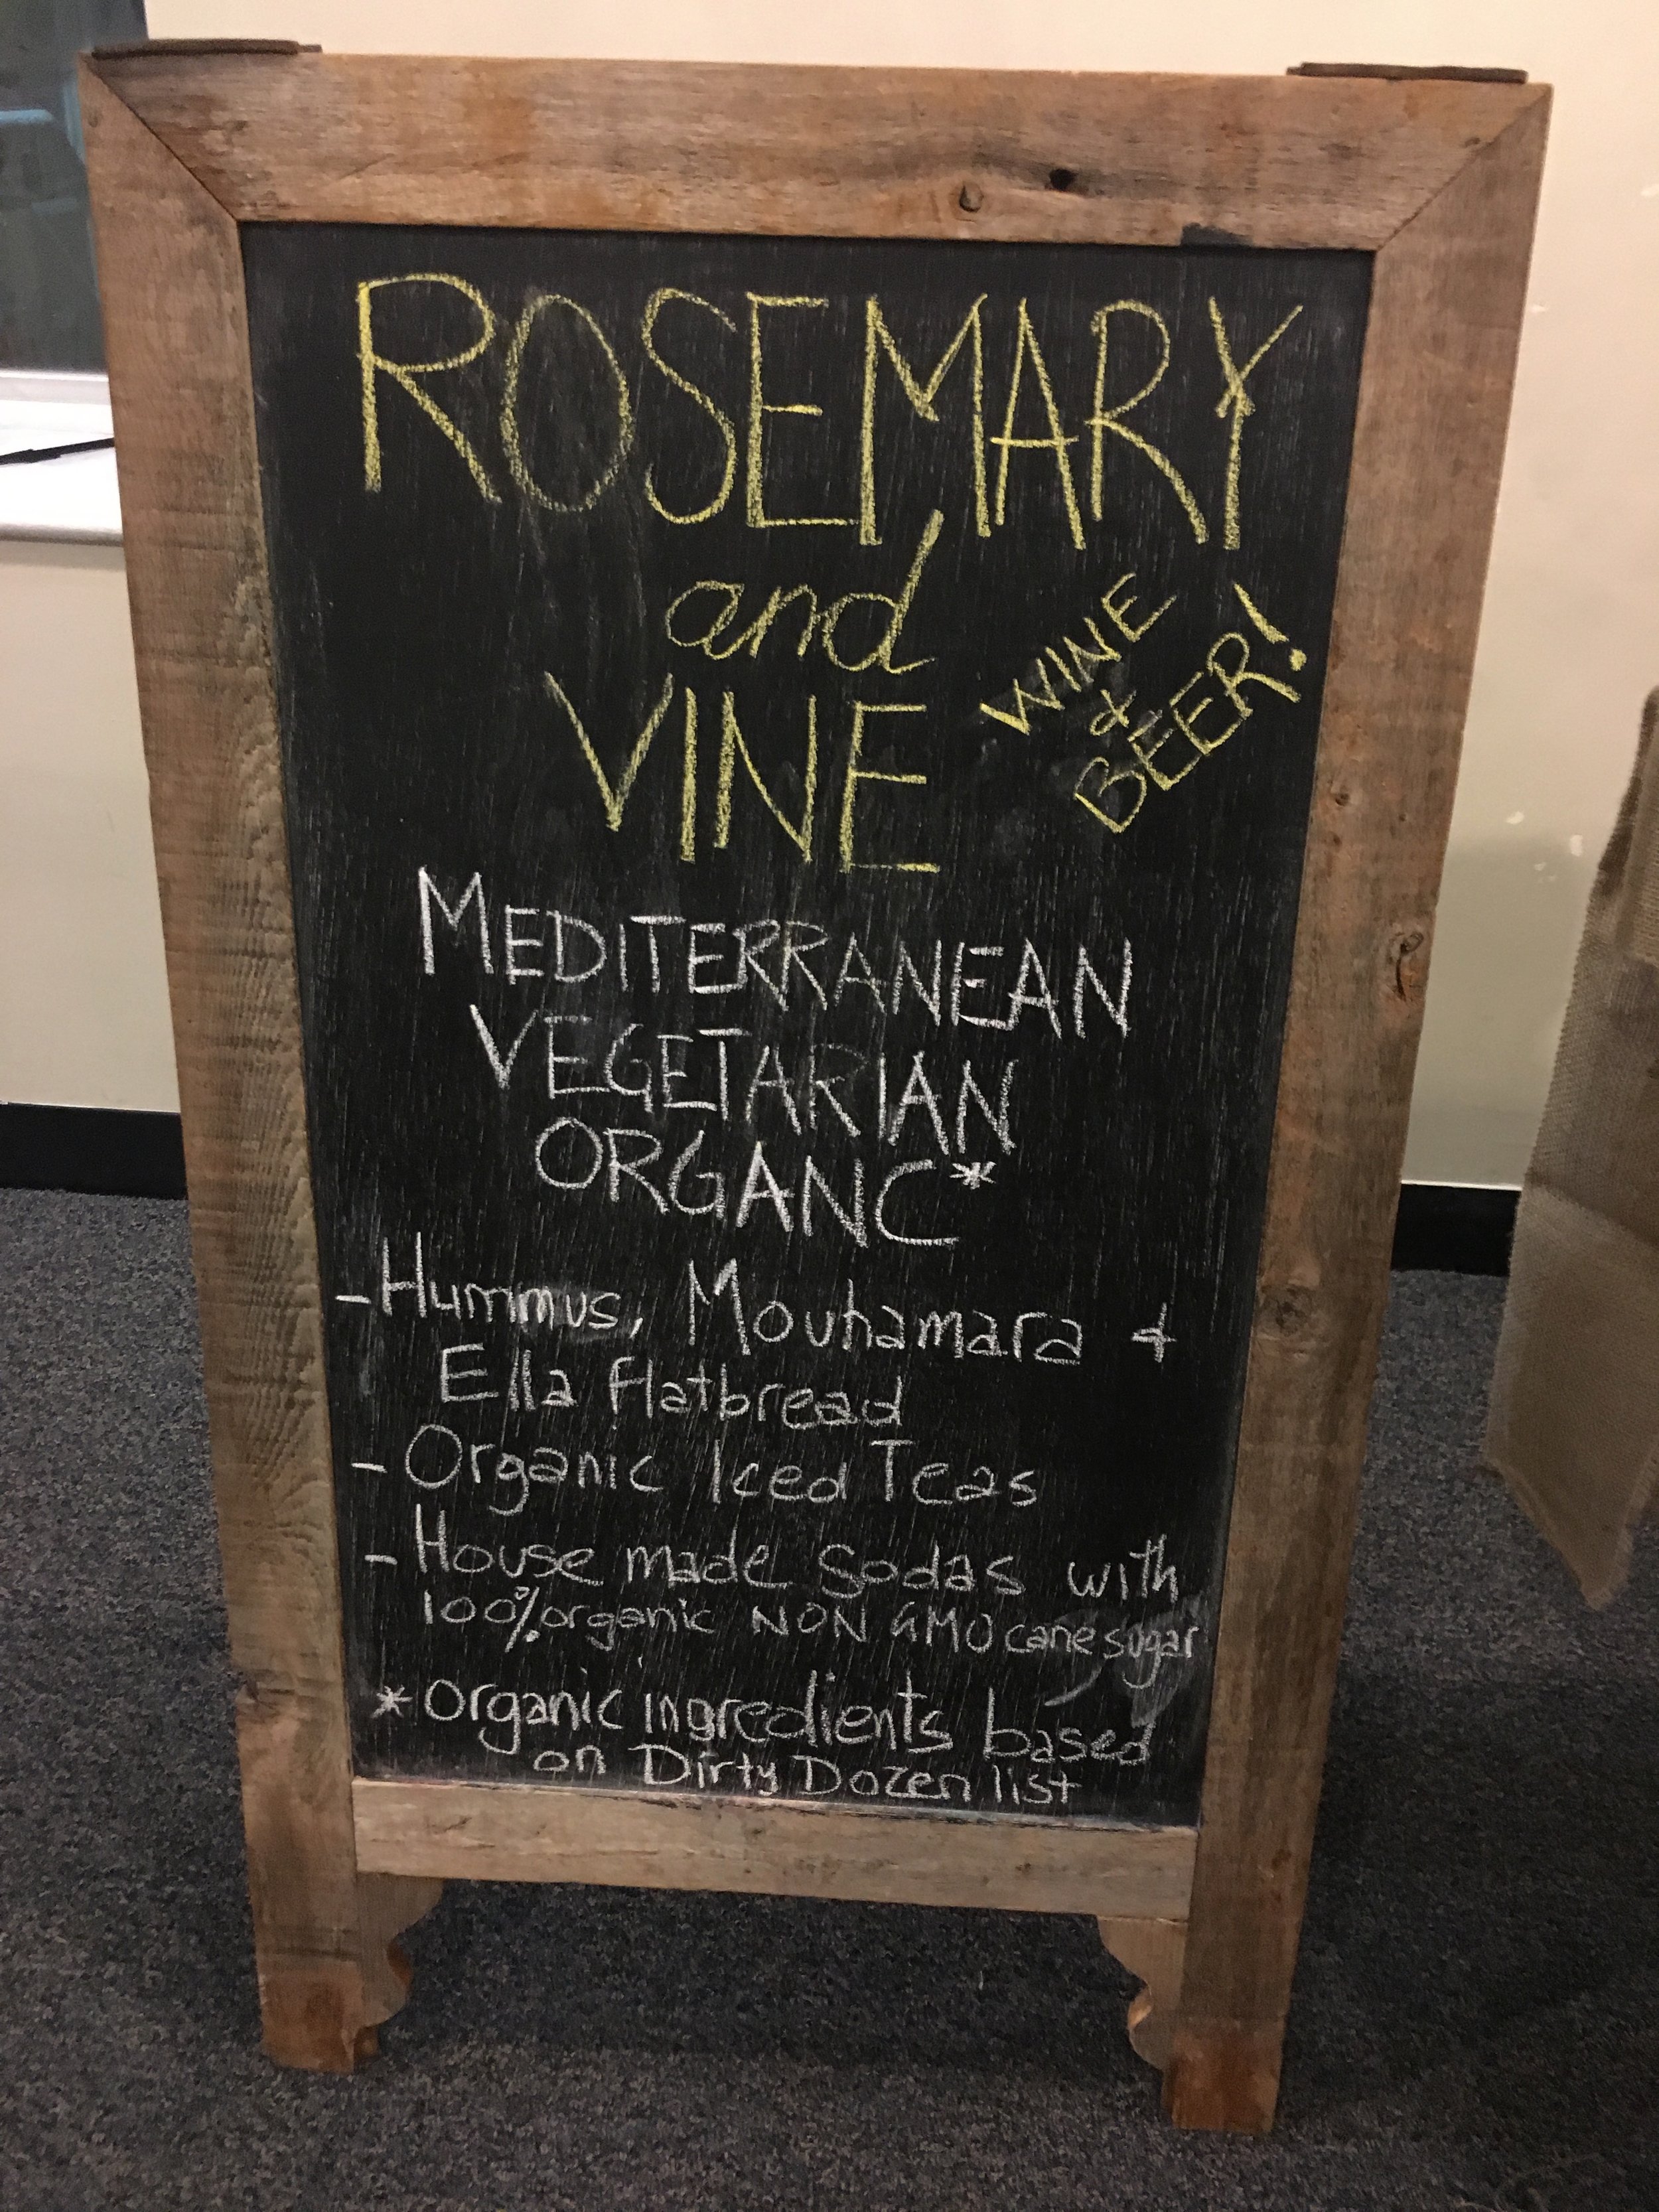 ROSEMARY
and
VINE
WINE
&
BEER!
MEDITERRANEAN
VEGETARIAN
ORGANC*
- Hummus, Mouhamara &
Ella flatbread
- Organic Iced Teas
- House made Sodas with
100% organic NON GMO cane sugar
* organic ingredients based
on Dirty Dozen list